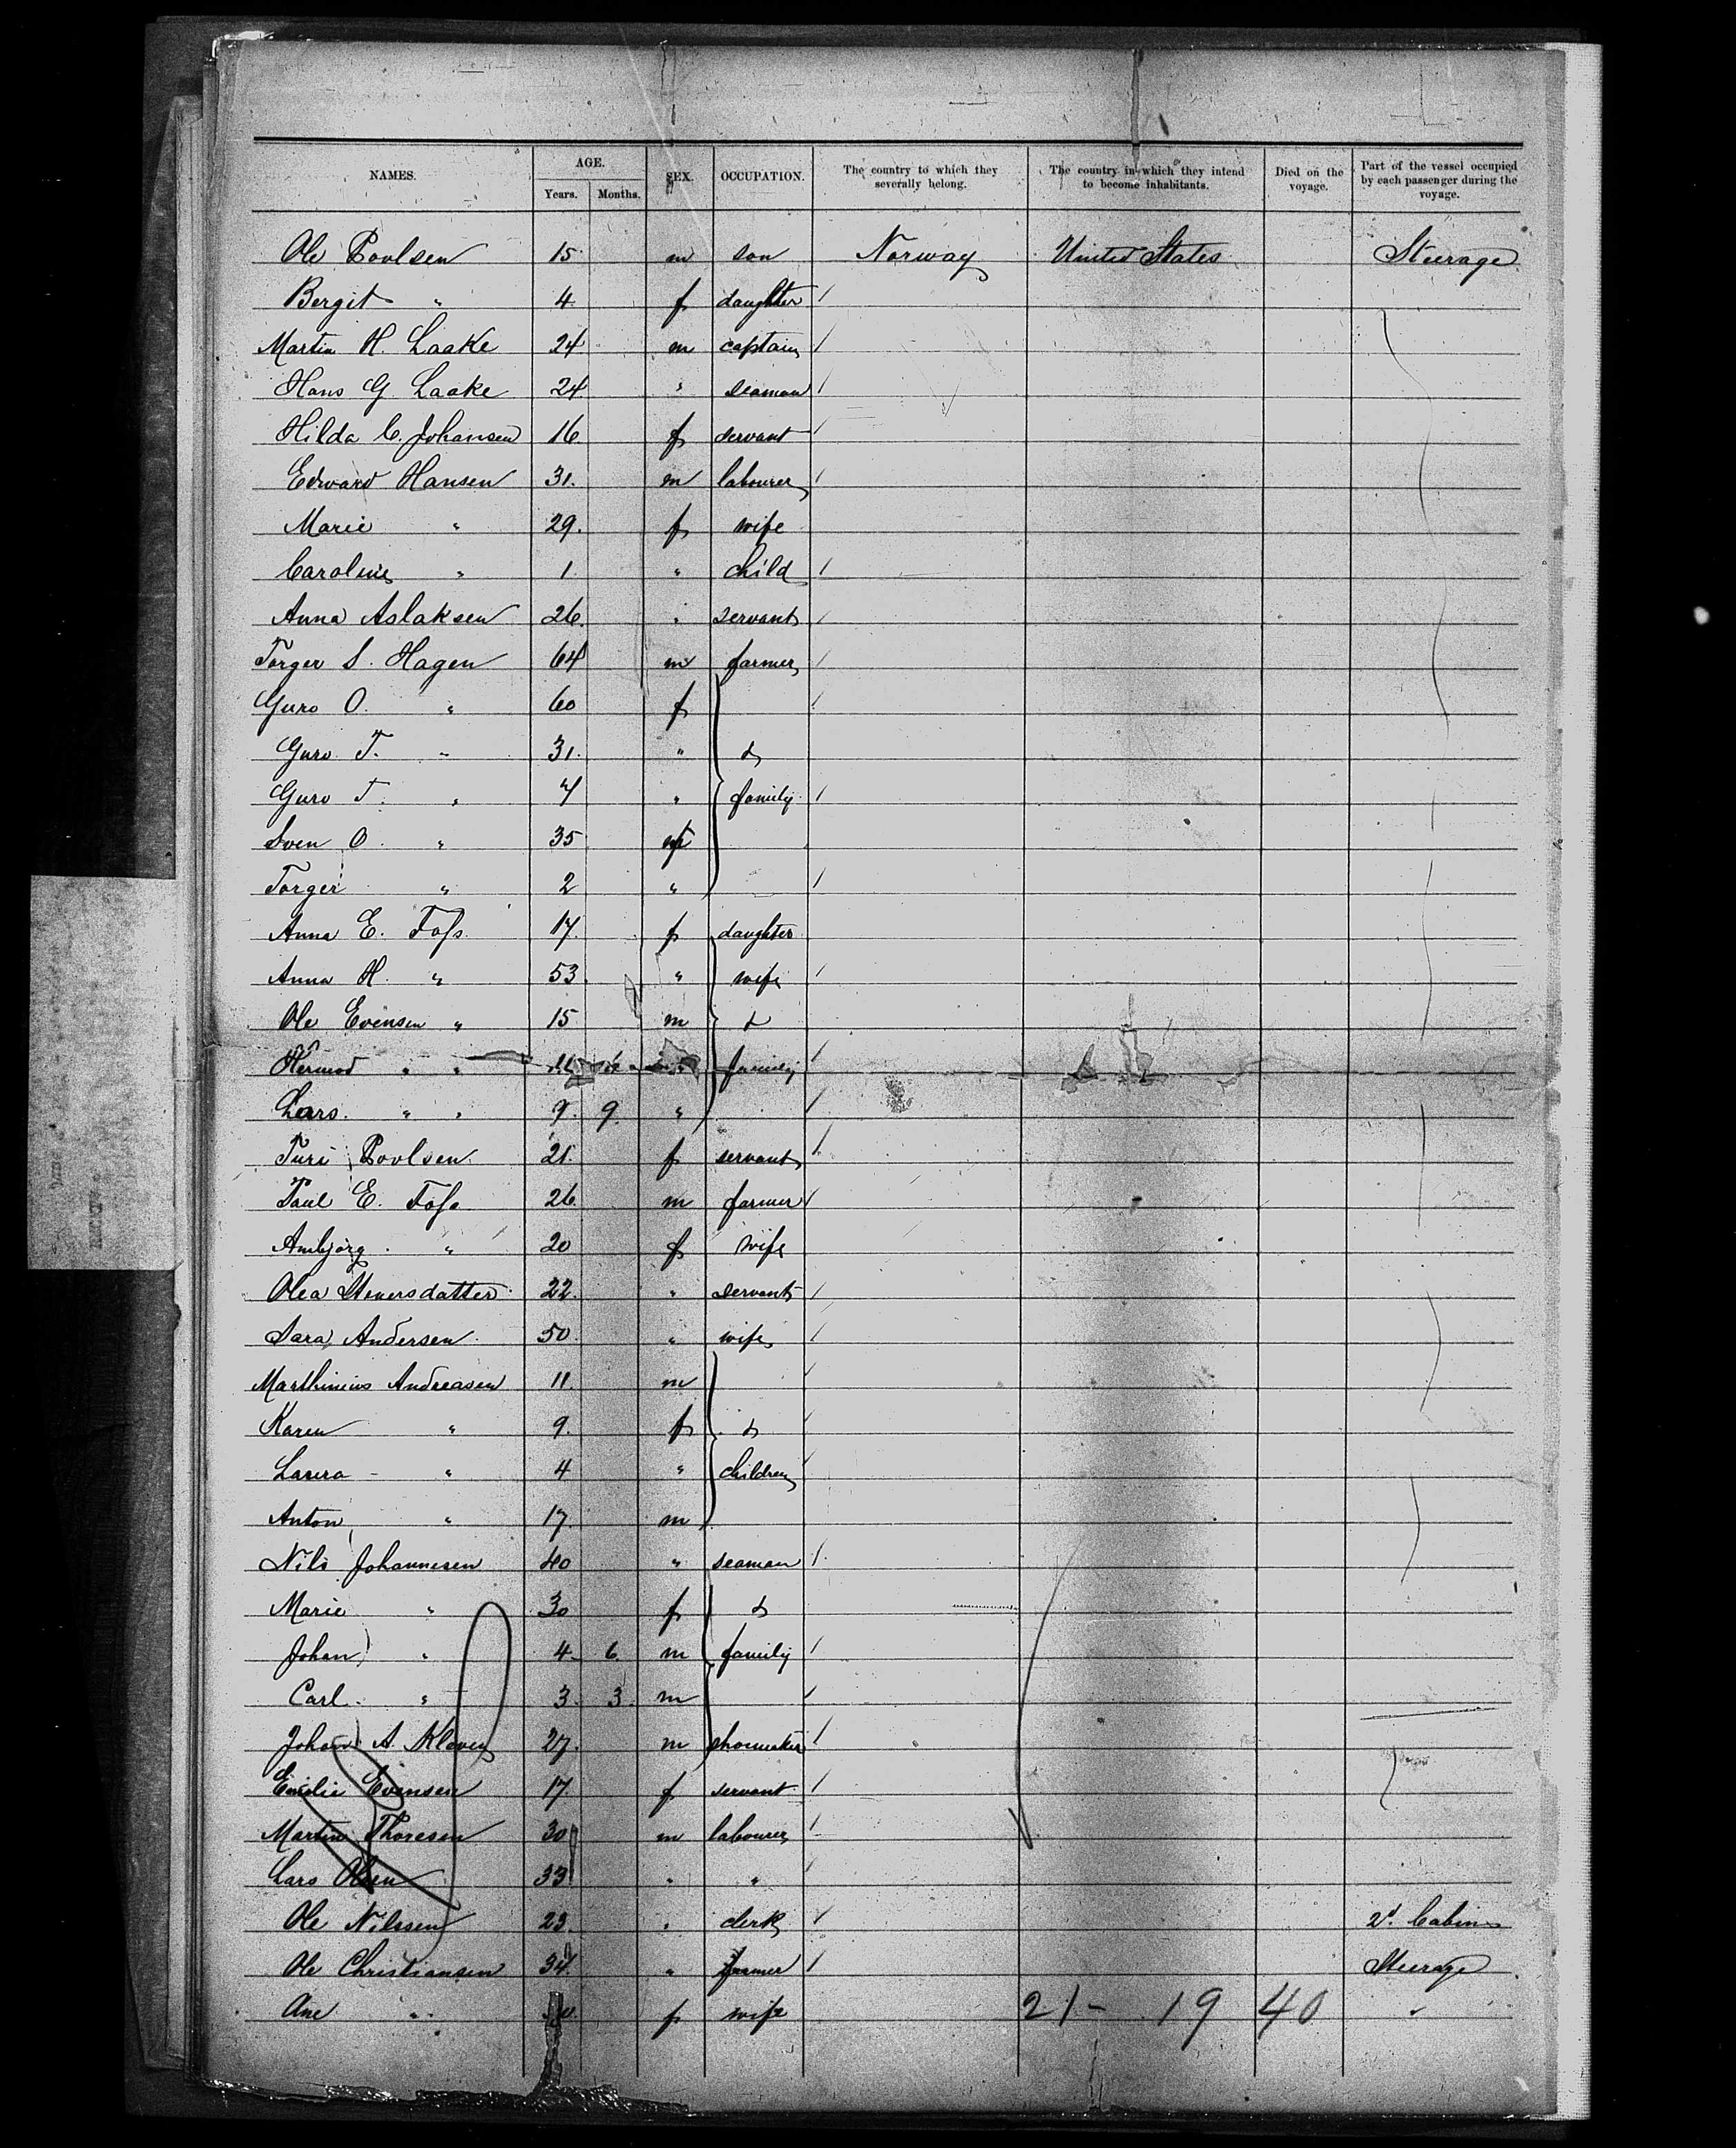 NAMES. AGE. SEX. OCCUPATION. The country to which they severally belong. The country in which they intend to become inhabitants. Died on the voyage. Part of the vessel occupied by each passenger during the voyage.
Years. Months.
Ole Poulsen 15 m son Norway United States Steerage
Bergit " 4 f daughter
Martin H. Laake 24 m captain
Hans G. Laake 24 " seaman
Hilda C. Johansen 16 f servant
Edward Hansen 31. m labourer
Marie " 29. f wife
Caroline " 1 " child
Anna Aslaksen 26. " servant
Torger S. Hagen 64 m farmer
Guro O. " 60 f
Guro T. " 31. " &
Guro T. " 4 " family
Sven O. " 35 m
Torger " 2 "
Anna E. Foss 17. f daughter
Anna H. " 53. " wife
Ole Evensen " 15 m &
Hermod " " family
Lars. " " 9. 9. "
Turi Poulsen 21. f servant
Paul E. Foss 26. m farmer
Ambjörg " 20 f wife
Olea Stenersdatter 22. " servant
Sara Andersen 50. " wife
Marthinius Andreasen 11. m
Karen " 9. f &
Laura " 4 " children
Anton " 17. m
Nils Johannesen 40 " seaman
Marie " 30 f &
Johan " 4. 6. m family
Carl " 3. 3. m
Johan A. Kleven 27. m shoemaker
Emilie Evensen 17. f servant
Martin Thoresen 30 m labourer
Lars Olsen 33 " "
Ole Nilssen 23. " clerk 2d. Cabin
Ole Christiansen 34. " farmer Steerage
Ane " f wife "
21- 19 40